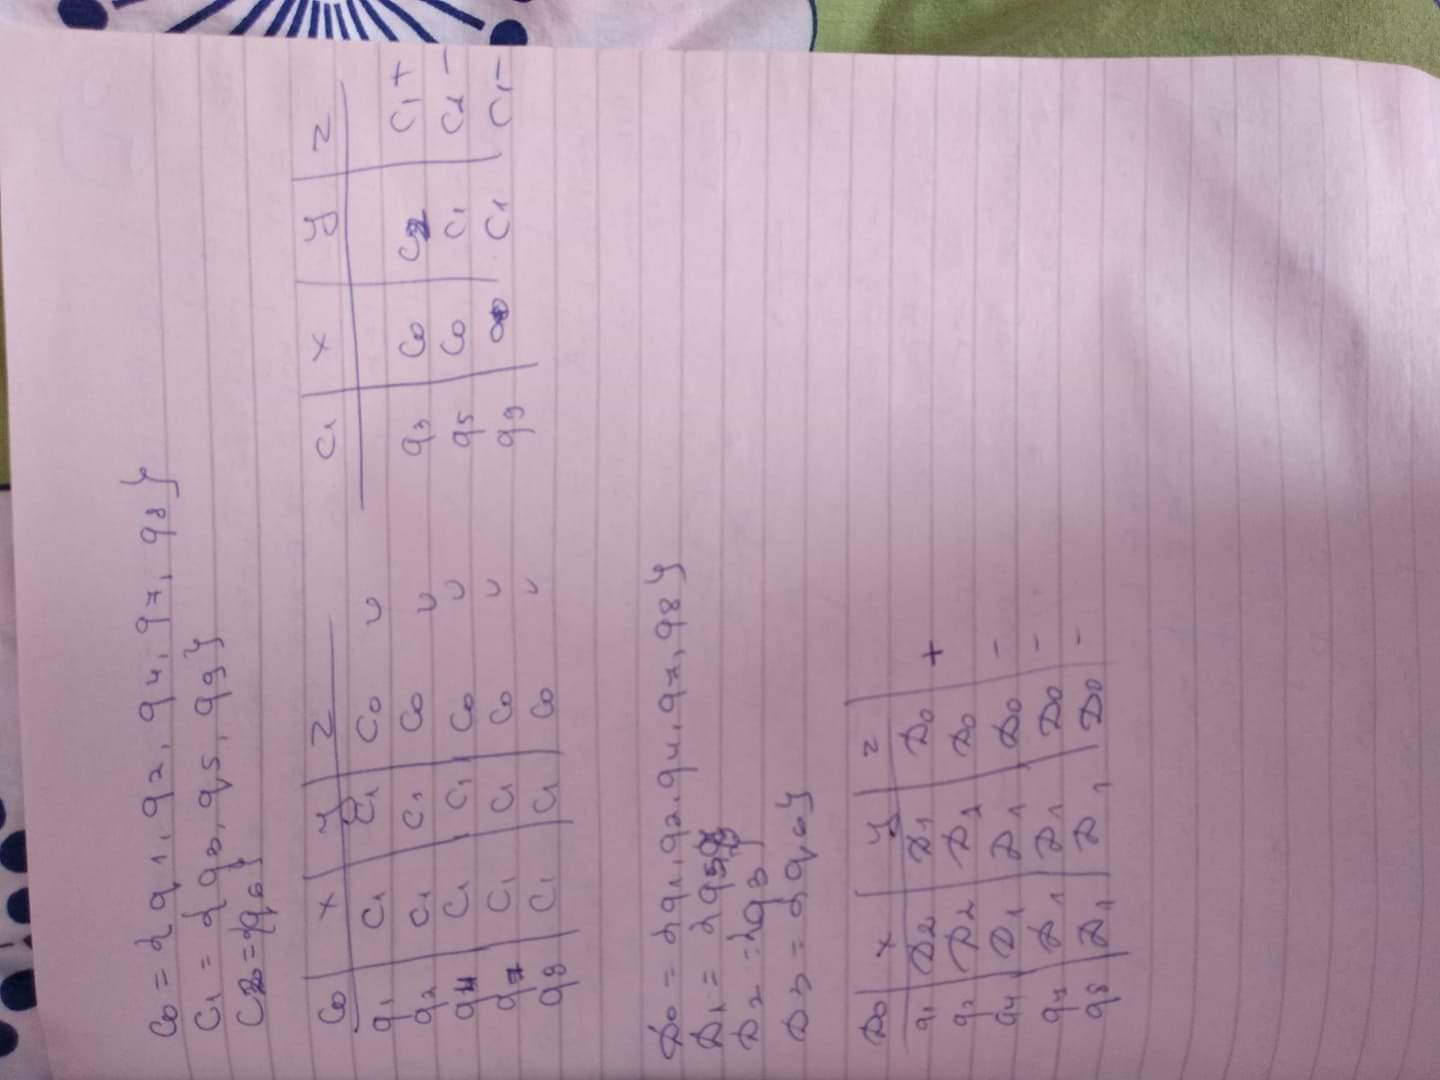 C0 = {q1, q2, q4, q7, q8}
C1 = {q3, q5, q9}
C2 = {q6}
C0 | x | y | z
q1 | C1 | C1 | C0 ᴗ
q2 | C1 | C1 | C0 ᴗ
q4 | C1 | C1 | C0 ᴗ
q7 | C1 | C1 | C0 ᴗ
q8 | C1 | C1 | C0 ᴗ
C1 | x | y | z
q3 | C0 | C2 | C1 +
q5 | C0 | C1 | C1 -
q9 | C0 | C1 | C1 -
D0 = {q1, q2, q4, q7, q8}
D1 = {q5, q9}
D2 = {q3}
D3 = {q6}
D0 | x | y | z
q1 | D2 | D1 | D0 +
q2 | D2 | D2 | D0
q4 | D1 | D1 | D0 -
q7 | D1 | D1 | D0 -
q8 | D1 | D1 | D0 -